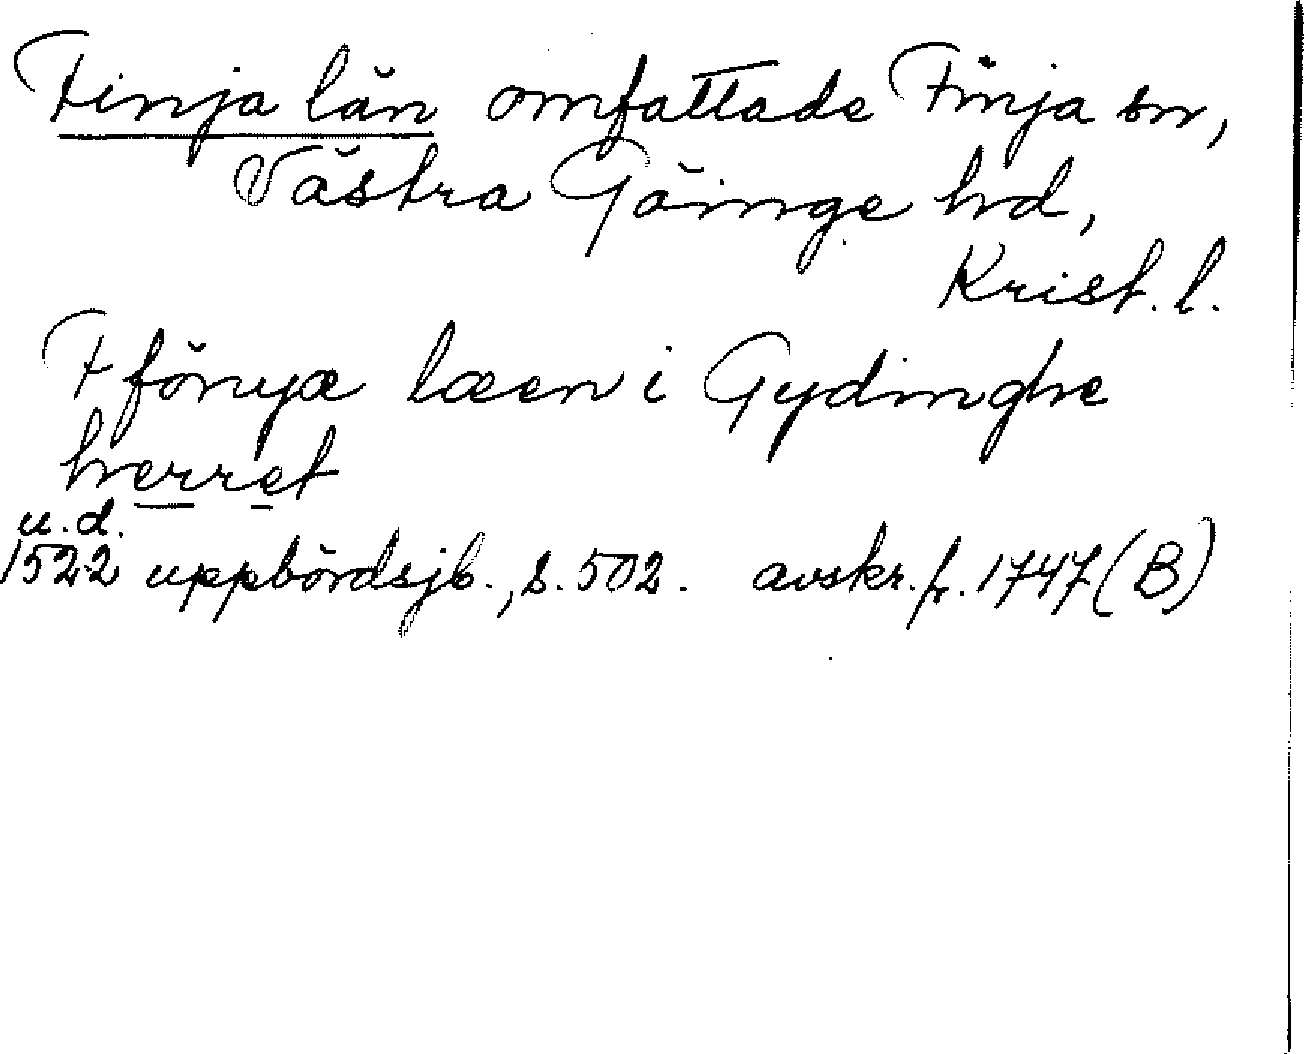 Finja län omfattade Finja sn,
Västra Göinge hd,
Krist. l.
Ffönyæ læen i Gydinghe
herret
u.d.
1522 uppbördsjb., s. 502. avskr. fr. 1747 (B)